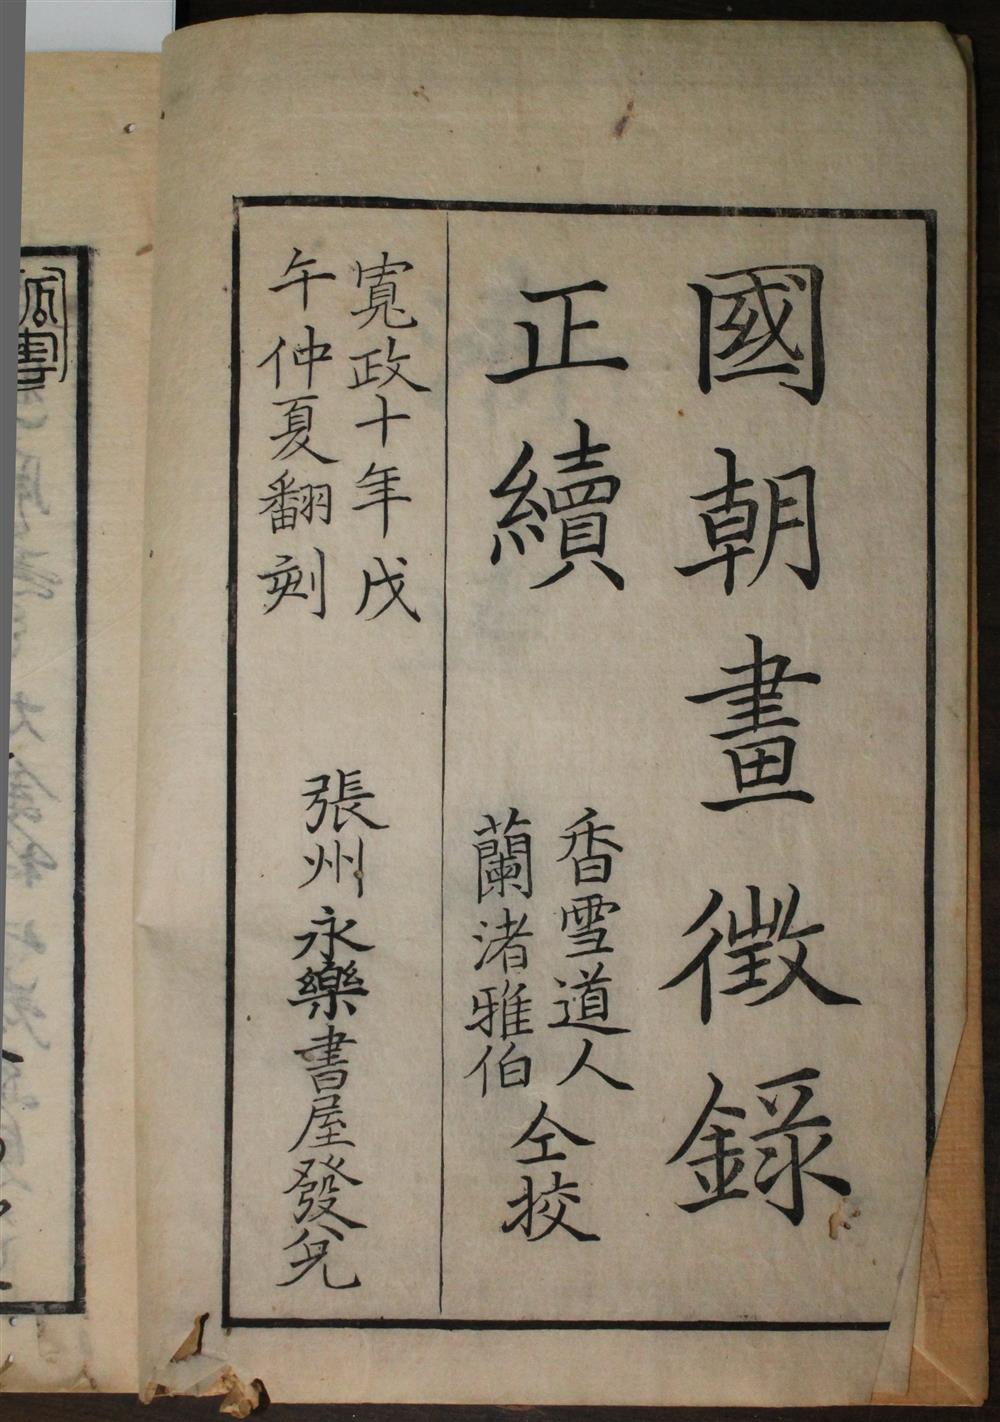 國朝畫徵錄
正續
香雪道人
蘭渚雅伯
仝挍
寬政十年戊
午仲夏翻刻
張州永樂書屋發兌